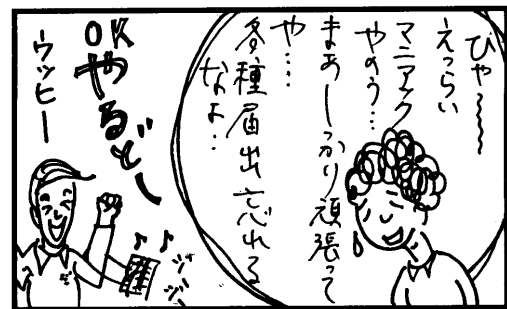 ひゃ〜〜
えっらい
マニアック
やのう…
まあしっかり頑張って
や…
各種届出忘れる
なよ…
OK
やるどー
ウッヒー
♪♪
ジージー